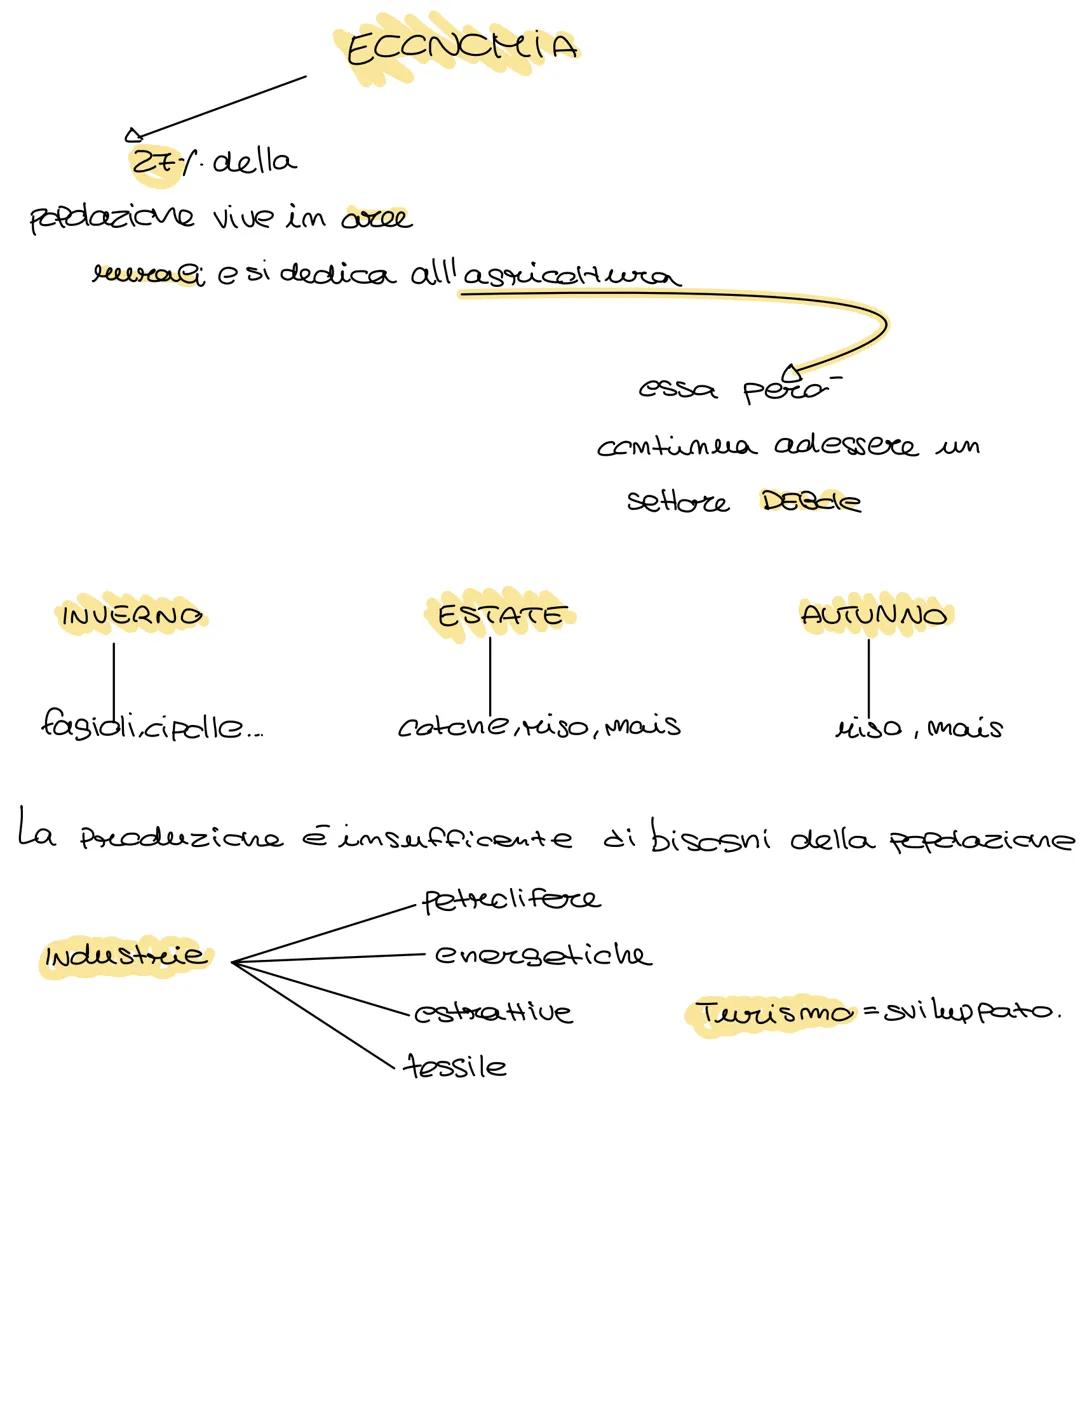 ECONOMIA
27% della
popolazione vive in aree
rurali e si dedica all'agricoltura
essa però
continua ad essere un
settore DEBole
INVERNO
ESTATE
AUTUNNO
fagioli, cipolle...
cotone, riso, mais
riso, mais
La produzione è insufficente di bisogni della popolazione
petrolifere
Industrie
energetiche
estrattive
Turismo = sviluppato.
tessile